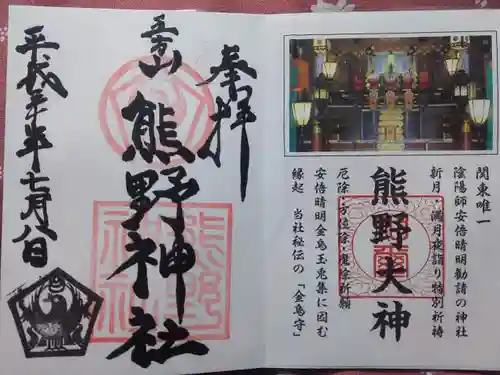 奉拝
五方山
熊野神社
平成三十年七月八日
熊野
神社
関東唯一
陰陽師安倍晴明勧請の神社
新月・満月夜詣り特別祈祷
熊野大神
厄除・方位除・魔除祈願
安倍晴明金烏玉兎集に因む
縁起 当社秘伝の「金烏守」